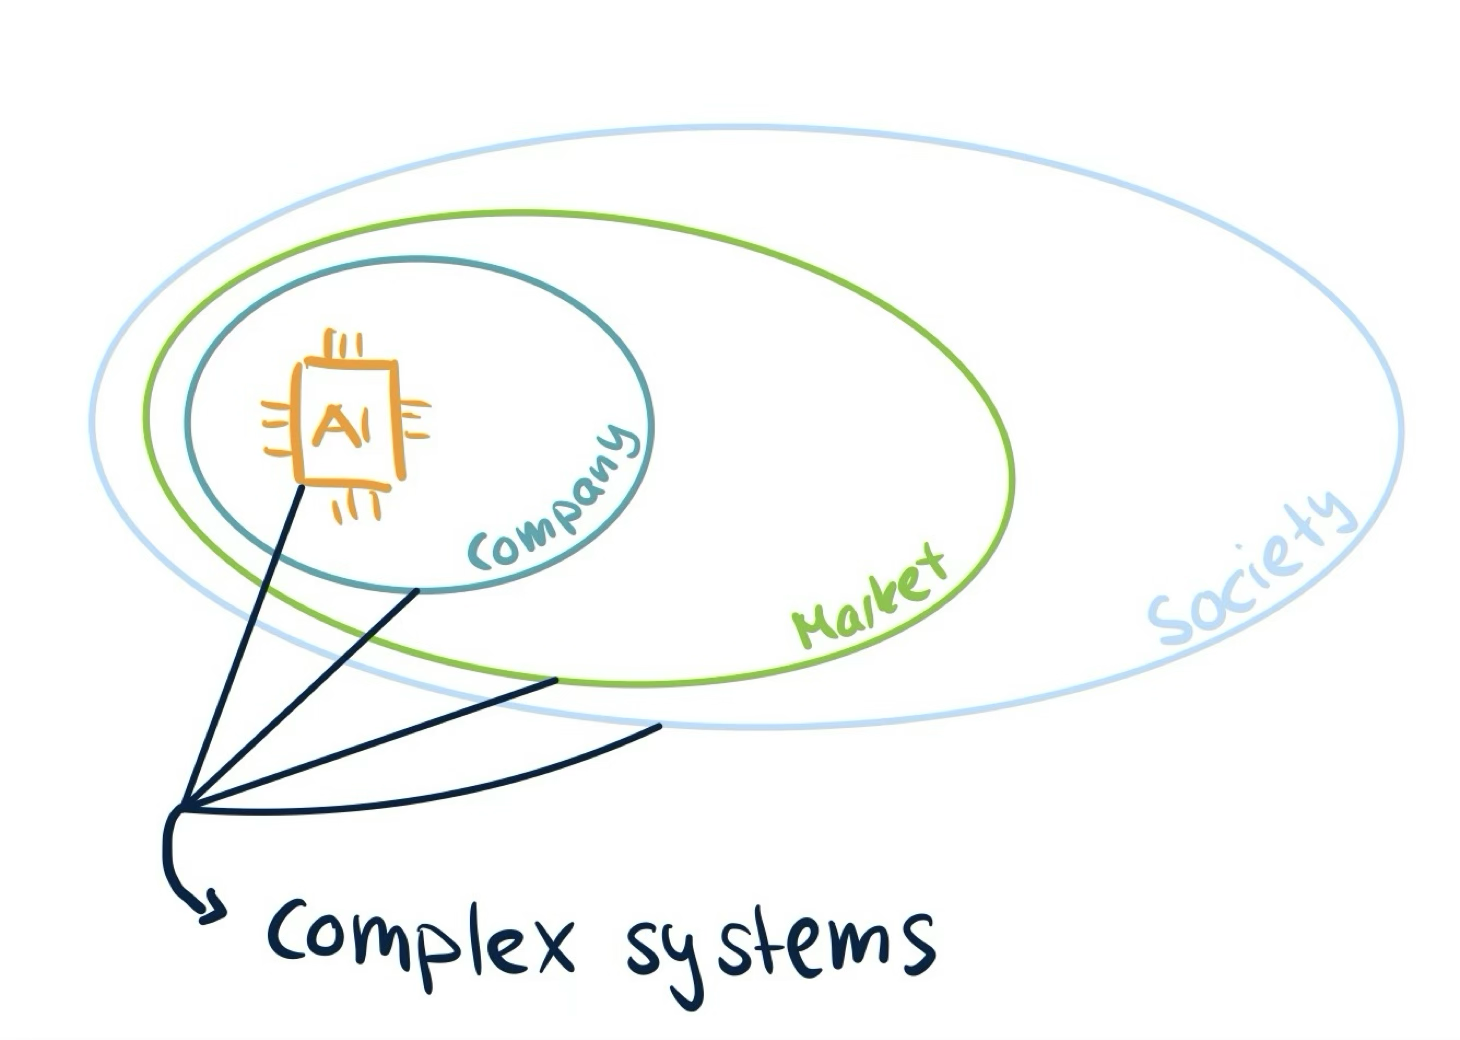 AI
Company
Market
Society
Complex systems